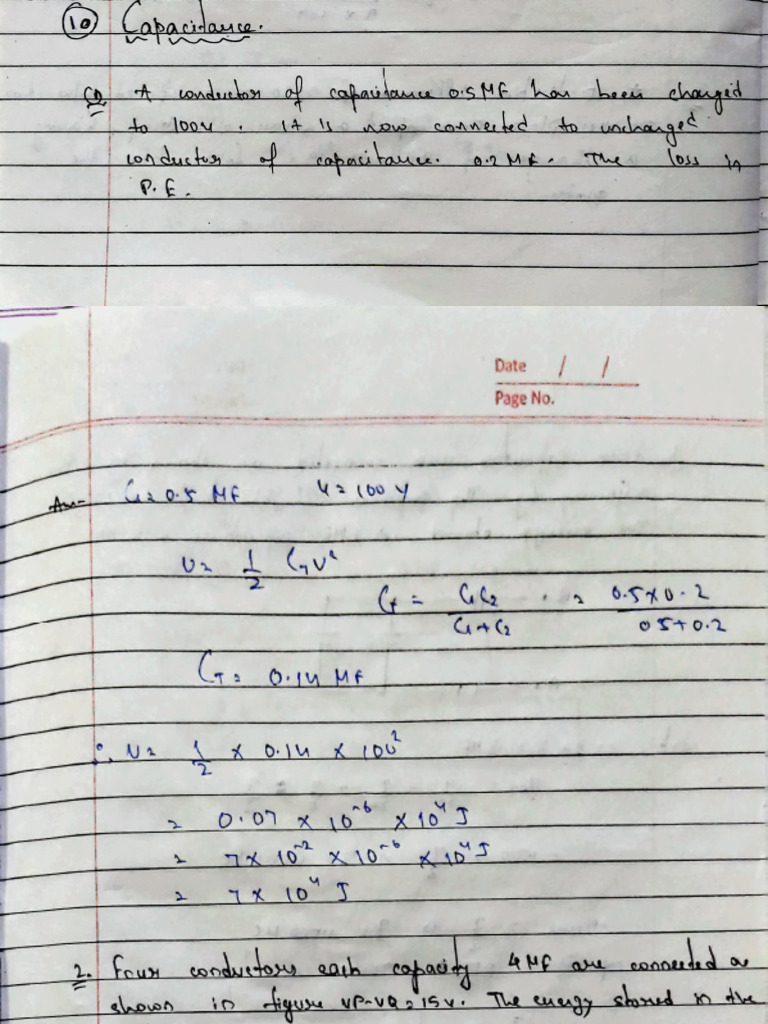 10 Capacitance.
Q A conductor of capacitance 0.5 MF has been charged
to 100v. It is now connected to uncharged
conductor of capacitance. 0.2 MF. The loss in
P.E.
Date / /
Page No.
Ans- C1 = 0.5 MF V = 100 V
U = 1/2 CTV²
CT = C1C2/C1+C2 = 0.5×0.2/0.5+0.2
CT = 0.14 MF
∴ U = 1/2 × 0.14 × 100²
= 0.07 × 10⁻⁶ × 10⁴ J
= 7 × 10⁻² × 10⁻⁶ × 10⁴ J
= 7 × 10⁴ J
2. Four conductors each capacity 4 MF are connected as
shown in figure VP-VQ = 15v. The energy stored in the